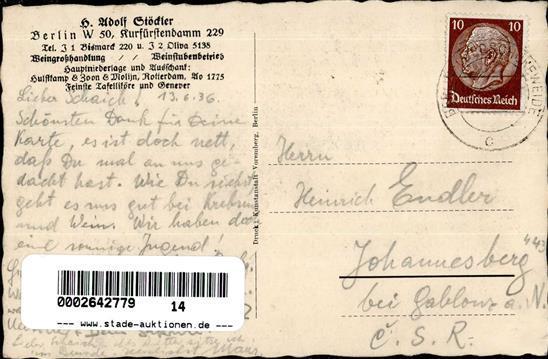 H. Adolf Stöckler
Berlin W 50, Kurfürstendamm 229
Tel. J 1 Bismarck 220 u. J 2 Oliva 5138
Weingroßhandlung / / Weinstubenbetrieb
Hauptniederlage und Ausschank:
Hulstkamp & Zoon & Molijn, Rotterdam, Ao 1775
Feinste Tafelliköre und Genever
Lieber Schaich! 13.6.36.
Schönsten Dank für Deine
Karte, es ist doch nett,
daß Du mal an uns ge-
dacht hast. Wie Du siehst
geht es uns gut bei
und Wein. Wir haben doch
eine sonnige Jugend!
Druck: Kunstanstalt Vorenberg, Berlin
10 10
Deutsches Reich
c
Herrn
Heinrich Endler
Johannesberg "43
bei Gablonz a. N.
Č. S. R.
0002642779 14
- www.stade-auktionen.de -